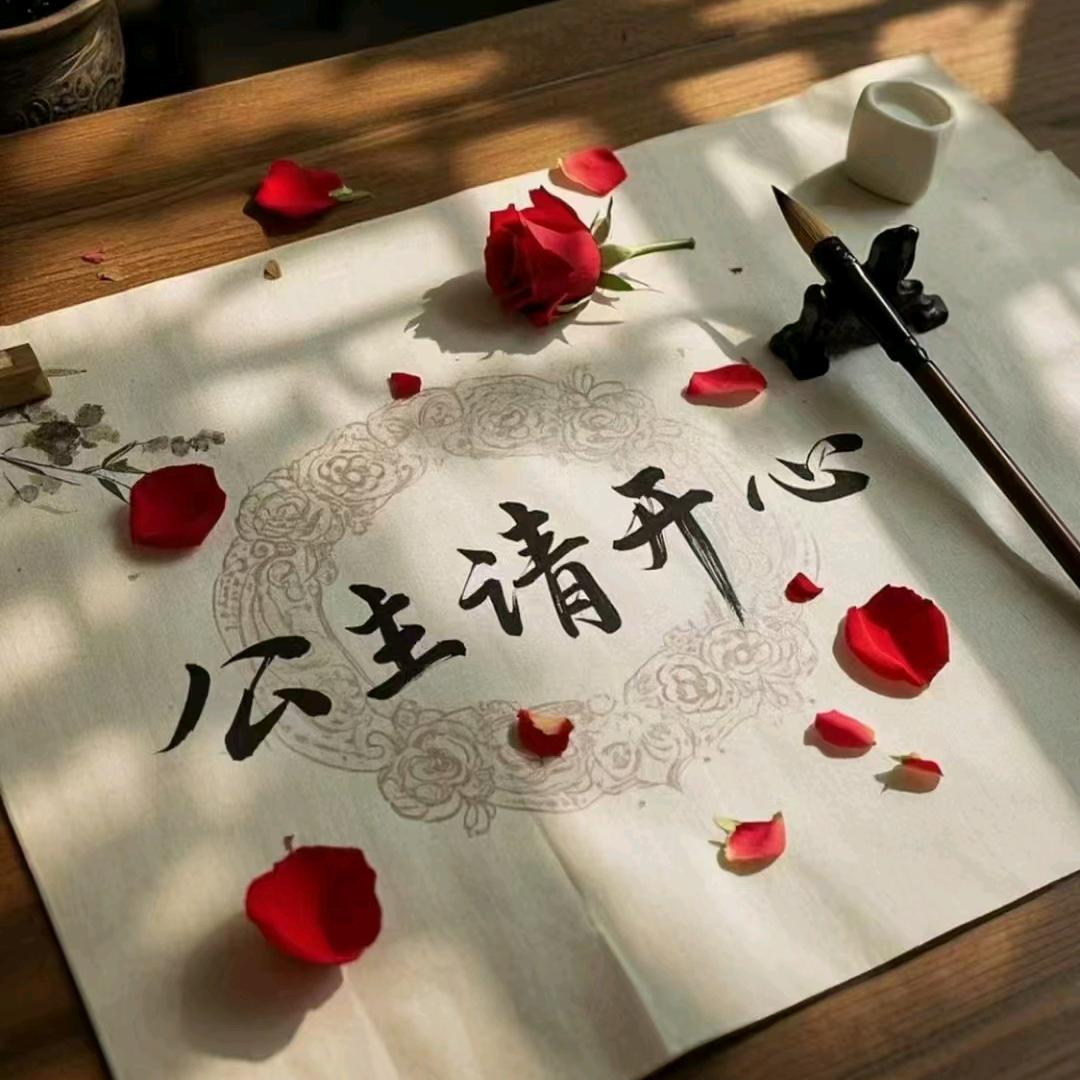 公主请开心